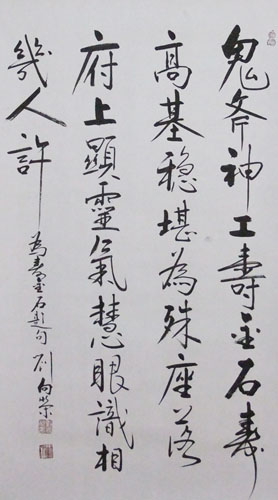 鬼斧神工壽金石壽
高基穩堪為殊座落
府上顯靈氣慧眼識相
幾人許
為壽金石題句 劉向榮